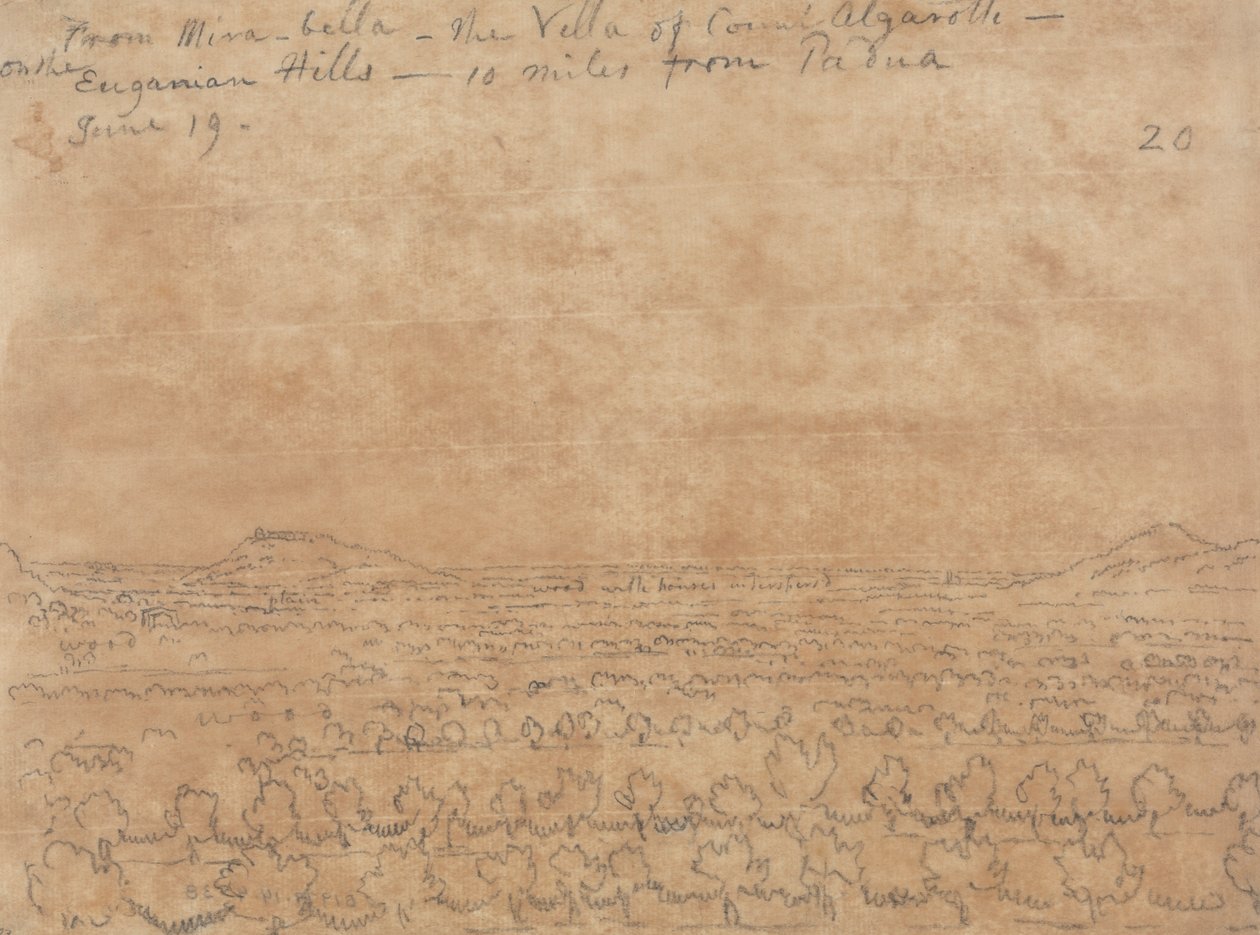 From Mira-bella - the Vella of Count Algarotti —
on the Euganian Hills — 10 miles from Padua
June 19 -
20
wood with houses interspersd
plain
wood
wood